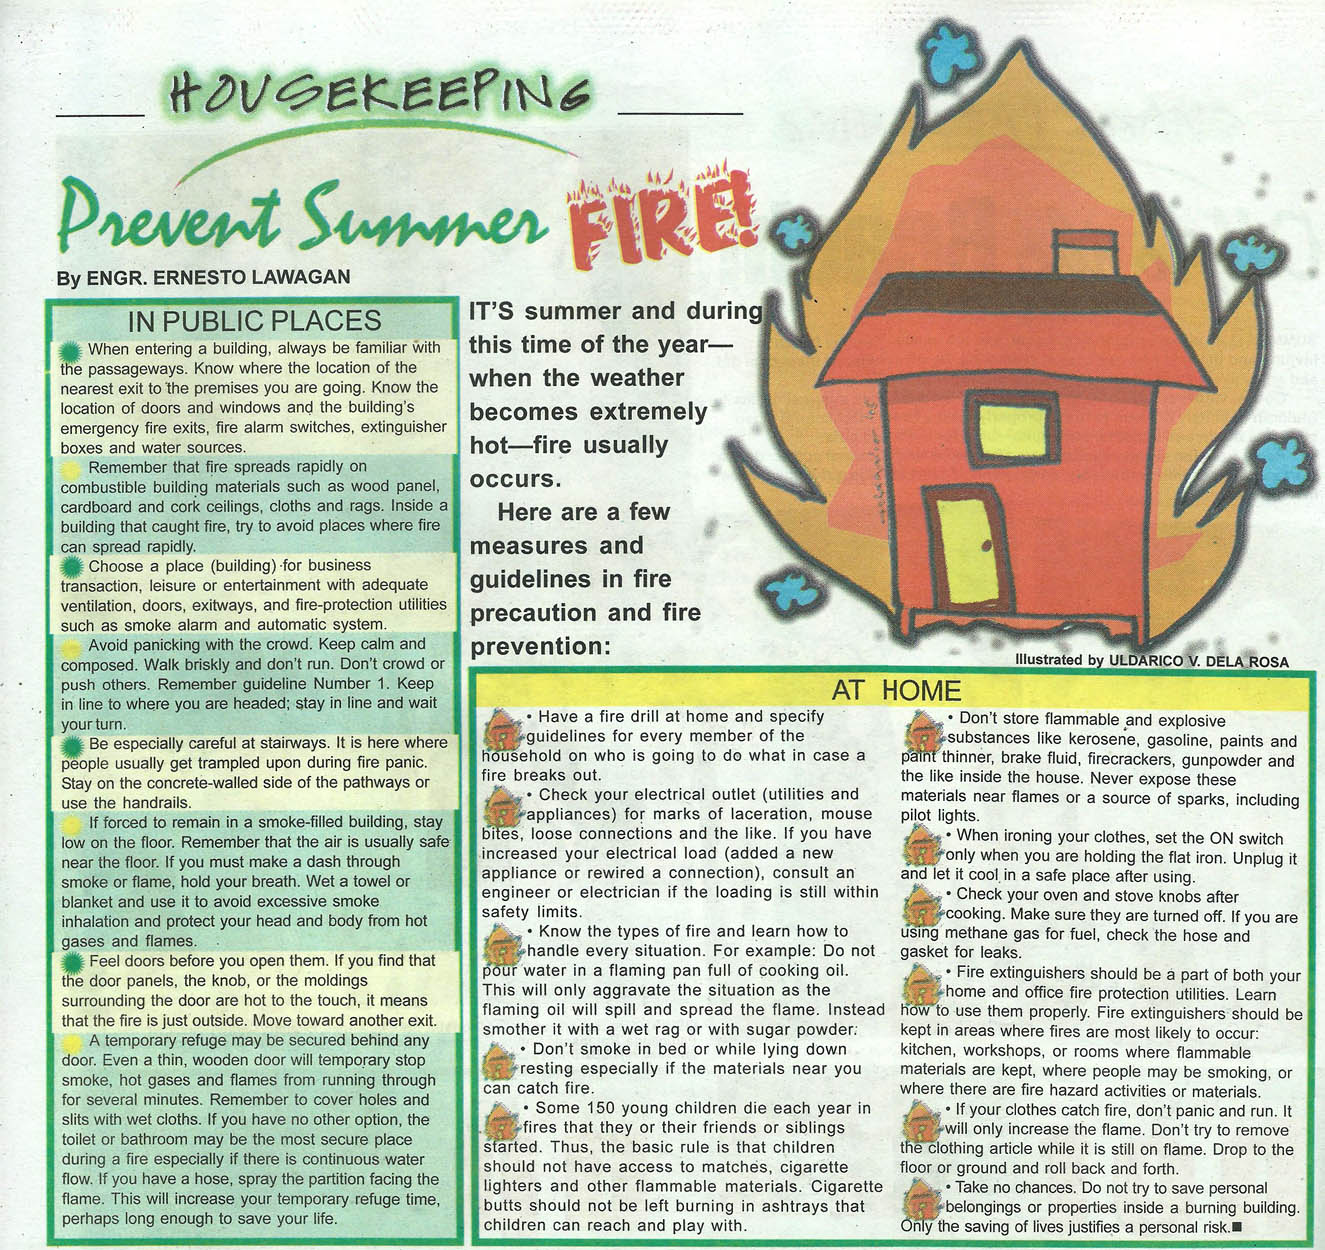 HOUSEKEEPING
Prevent Summer FIRE!
By ENGR. ERNESTO LAWAGAN
IN PUBLIC PLACES
When entering a building, always be familiar with
the passageways. Know where the location of the
nearest exit to the premises you are going. Know the
location of doors and windows and the building's
emergency fire exits, fire alarm switches, extinguisher
boxes and water sources.
Remember that fire spreads rapidly on
combustible building materials such as wood panel,
cardboard and cork ceilings, cloths and rags. Inside a
building that caught fire, try to avoid places where fire
can spread rapidly.
Choose a place (building) for business
transaction, leisure or entertainment with adequate
ventilation, doors, exitways, and fire-protection utilities
such as smoke alarm and automatic system.
Avoid panicking with the crowd. Keep calm and
composed. Walk briskly and don't run. Don't crowd or
push others. Remember guideline Number 1. Keep
in line to where you are headed; stay in line and wait
your turn.
Be especially careful at stairways. It is here where
people usually get trampled upon during fire panic.
Stay on the concrete-walled side of the pathways or
use the handrails.
If forced to remain in a smoke-filled building, stay
low on the floor. Remember that the air is usually safe
near the floor. If you must make a dash through
smoke or flame, hold your breath. Wet a towel or
blanket and use it to avoid excessive smoke
inhalation and protect your head and body from hot
gases and flames.
Feel doors before you open them. If you find that
the door panels, the knob, or the moldings
surrounding the door are hot to the touch, it means
that the fire is just outside. Move toward another exit.
A temporary refuge may be secured behind any
door. Even a thin, wooden door will temporary stop
smoke, hot gases and flames from running through
for several minutes. Remember to cover holes and
slits with wet cloths. If you have no other option, the
toilet or bathroom may be the most secure place
during a fire especially if there is continuous water
flow. If you have a hose, spray the partition facing the
flame. This will increase your temporary refuge time,
perhaps long enough to save your life.
IT'S summer and during
this time of the year—
when the weather
becomes extremely
hot—fire usually
occurs.
Here are a few
measures and
guidelines in fire
precaution and fire
prevention:
Illustrated by ULDARICO V. DELA ROSA
AT HOME
• Have a fire drill at home and specify
guidelines for every member of the
household on who is going to do what in case a
fire breaks out.
• Check your electrical outlet (utilities and
appliances) for marks of laceration, mouse
bites, loose connections and the like. If you have
increased your electrical load (added a new
appliance or rewired a connection), consult an
engineer or electrician if the loading is still within
safety limits.
• Know the types of fire and learn how to
handle every situation. For example: Do not
pour water in a flaming pan full of cooking oil.
This will only aggravate the situation as the
flaming oil will spill and spread the flame. Instead
smother it with a wet rag or with sugar powder.
• Don't smoke in bed or while lying down
resting especially if the materials near you
can catch fire.
• Some 150 young children die each year in
fires that they or their friends or siblings
started. Thus, the basic rule is that children
should not have access to matches, cigarette
lighters and other flammable materials. Cigarette
butts should not be left burning in ashtrays that
children can reach and play with.
• Don't store flammable and explosive
substances like kerosene, gasoline, paints and
paint thinner, brake fluid, firecrackers, gunpowder and
the like inside the house. Never expose these
materials near flames or a source of sparks, including
pilot lights.
• When ironing your clothes, set the ON switch
only when you are holding the flat iron. Unplug it
and let it cool in a safe place after using.
• Check your oven and stove knobs after
cooking. Make sure they are turned off. If you are
using methane gas for fuel, check the hose and
gasket for leaks.
• Fire extinguishers should be a part of both your
home and office fire protection utilities. Learn
how to use them properly. Fire extinguishers should be
kept in areas where fires are most likely to occur:
kitchen, workshops, or rooms where flammable
materials are kept, where people may be smoking, or
where there are fire hazard activities or materials.
• If your clothes catch fire, don't panic and run. It
will only increase the flame. Don't try to remove
the clothing article while it is still on flame. Drop to the
floor or ground and roll back and forth.
• Take no chances. Do not try to save personal
belongings or properties inside a burning building.
Only the saving of lives justifies a personal risk.■